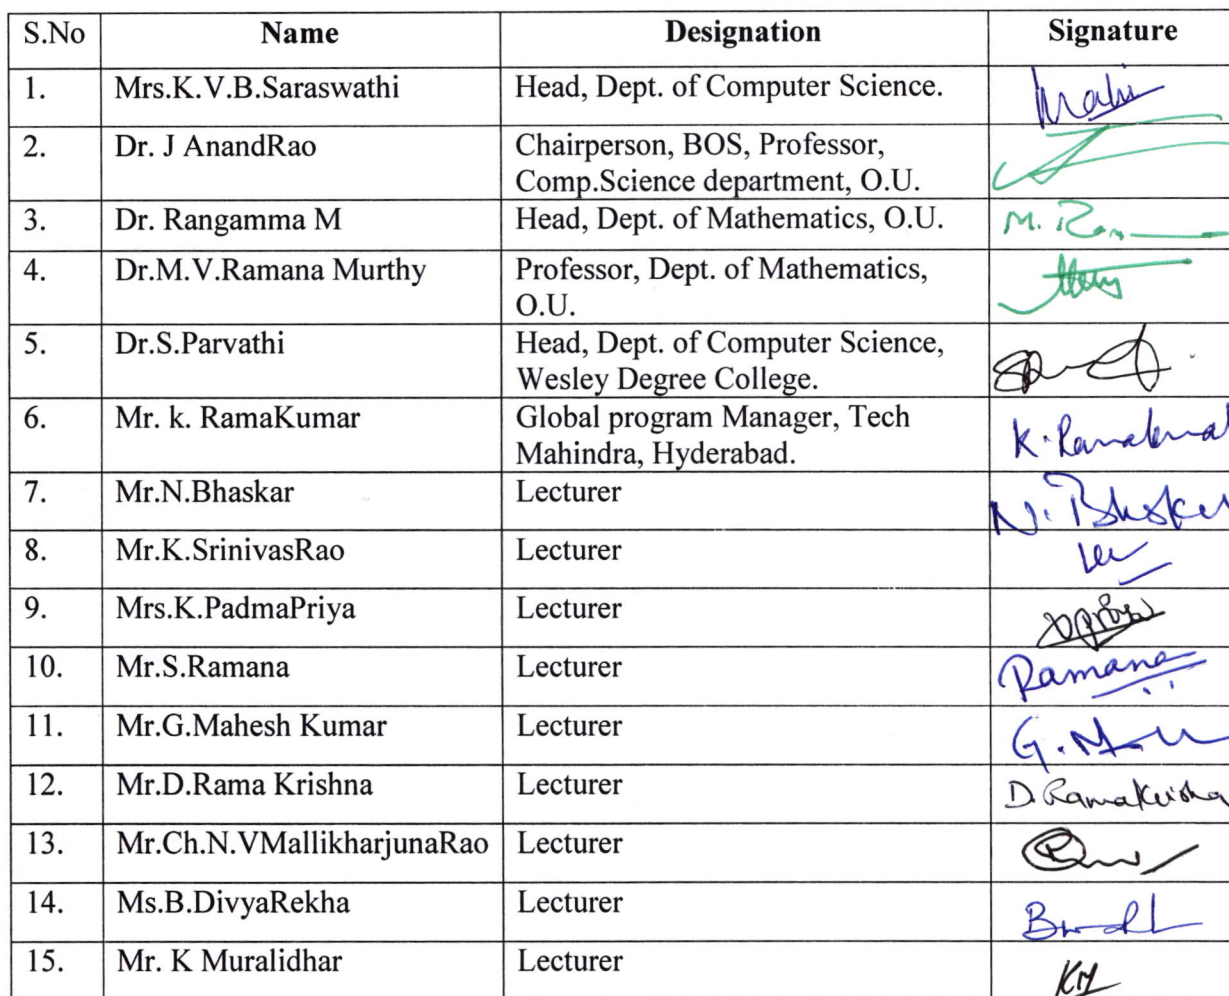 S.No Name Designation Signature
1. Mrs.K.V.B.Saraswathi Head, Dept. of Computer Science.
2. Dr. J AnandRao Chairperson, BOS, Professor,
Comp.Science department, O.U.
3. Dr. Rangamma M Head, Dept. of Mathematics, O.U. M.
4. Dr.M.V.Ramana Murthy Professor, Dept. of Mathematics,
O.U.
5. Dr.S.Parvathi Head, Dept. of Computer Science,
Wesley Degree College.
6. Mr. k. RamaKumar Global program Manager, Tech
Mahindra, Hyderabad. K.
7. Mr.N.Bhaskar Lecturer N.
8. Mr.K.SrinivasRao Lecturer
9. Mrs.K.PadmaPriya Lecturer
10. Mr.S.Ramana Lecturer Ramana
11. Mr.G.Mahesh Kumar Lecturer G.
12. Mr.D.Rama Krishna Lecturer D. RamaKrishna
13. Mr.Ch.N.VMallikharjunaRao Lecturer
14. Ms.B.DivyaRekha Lecturer
15. Mr. K Muralidhar Lecturer KM